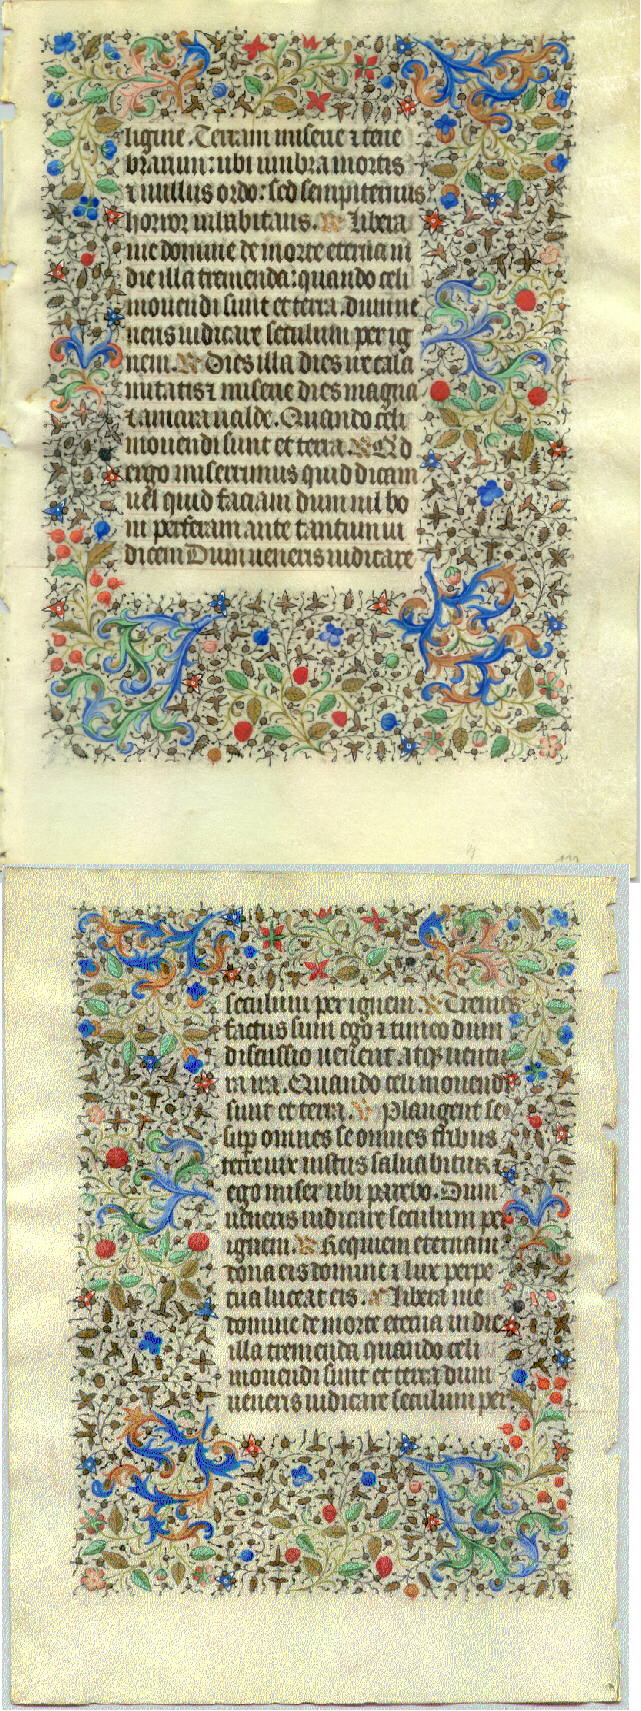 ligine. Terram miserie ⁊ tene
brarum: ubi umbra mortis
⁊ nullus ordo: sed sempiternus
horror inhabitans. R Libera
me domine de morte eterna in
die illa tremenda: quando celi
mouendi sunt et terra. dum ue
neris iudicare seculum per ig
nem. V Dies illa dies ire cala
mitatis ⁊ miserie dies magna
⁊ amara ualde. Quando celi
mouendi sunt et terra. V Quid
ergo miserrimus quid dicam
uel quid faciam dum nil bo
ni perferam ante tantum iu
dicem Dum ueneris iudicare
seculum per ignem. V Tremens
factus sum ego ⁊ timeo dum
discussio uenerit. atq; uentu
ra ira. Quando celi mouendi
sunt et terra. V Plangent se
sup omnes se omnes tribus
terre uix iustus saluabitur ⁊
ego miser ubi parebo. Dum
ueneris iudicare seculum per
ignem. V Requiem eternam
dona eis domine ⁊ lux perpe
tua luceat eis. R Libera me
domine de morte eterna in die
illa tremenda quando celi
mouendi sunt et terra dum
ueneris iudicare seculum per